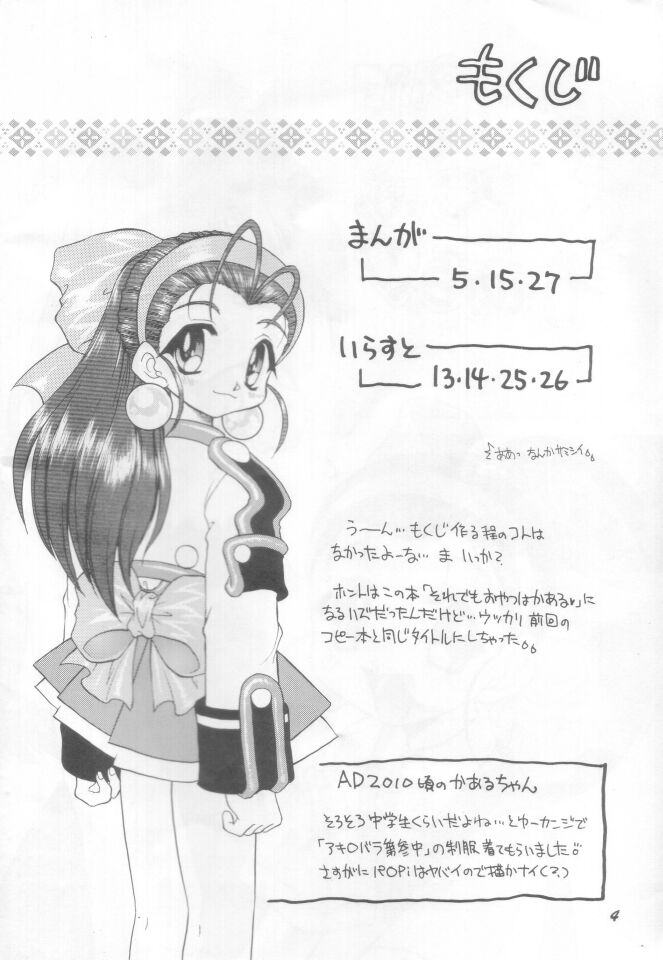 もくじ
まんが
5・15・27
いらすと
13・14・25・26
なんかサミシイ
うーーん… もくじ作る程のコトは
なかったよーな… ま いっか？
ホントはこの本「それでもおやつはかある♥」に
なるハズだったんだけど… ウッカリ前回の
コピー本と同じタイトルにしちゃった
AD2010頃のかあるちゃん
そろそろ中学生くらいだよね… とゆーカンジで
「アキロバラ第参中」の制服着てもらいました
さすがにPOPiはヤバイので描かナイ(？)
4